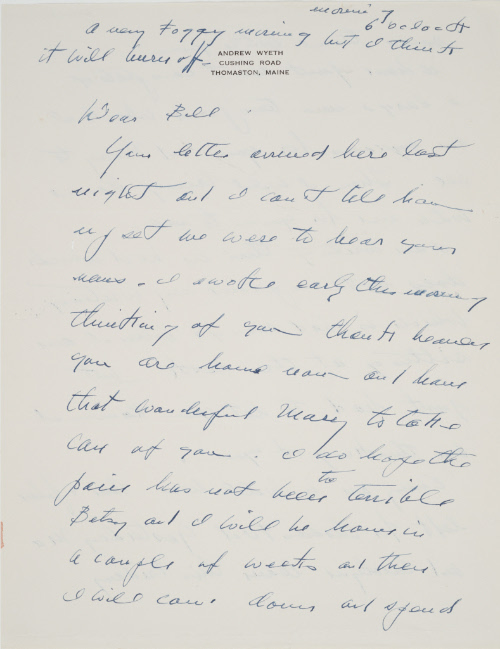 morning
6 oclock
a very Foggy morning but I think
it will burn off -
ANDREW WYETH
CUSHING ROAD
THOMASTON, MAINE
Dear Bill
Your letter arrived here last
night and I can't tell how
up set we were to hear your
news. I awoke early this morning
thinking of you thank heavens
you are home now and have
that wonderful Mary to take
care of you. I do hope the
pain has not been to terrible
Betsy and I will be home in
a couple of weeks and then
I will come down and spend